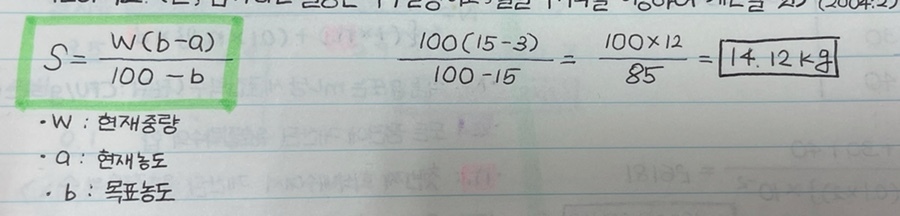 (2004.2)
S = W(b-a) / 100-b    100(15-3) / 100-15 = 100×12 / 85 = 14.12kg
· W : 현재중량
· a : 현재농도
· b : 목표농도